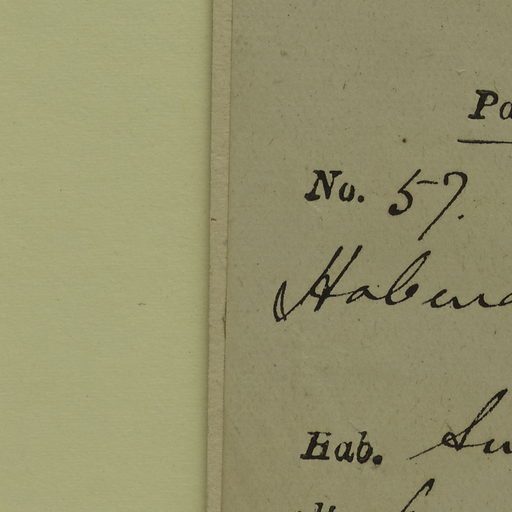 Pa
No. 57.
Habena
Hab. Su